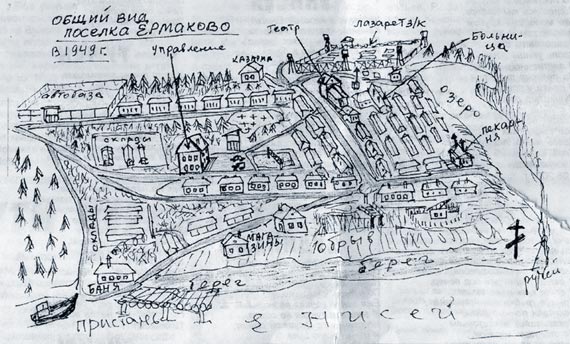 ОБЩИЙ ВИД
ПОСЕЛКА ЕРМАКОВО
В 1949 г.
Управление
КАЗАРМА
Театр
ЛАЗАРЕТ З/К
Больни-
ца
автобаза
ОЗЕРО
склады
пекар-
ня
СКЛАДЫ
МАГА
ЗИНЫ
Обрыв
берег
БАНЯ
берег
ручей
ПРИСТАНЬ
Енисей